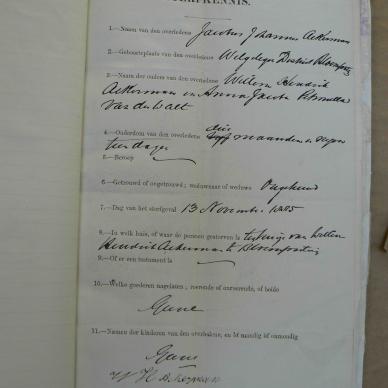 KENNIS.
1.—Naam van den overledene Jacobus Johannes Ackerman
2.—Geboorteplaats van den overledene District Bloemfontein
3.—Naam der ouders van den overledene Willem Hendrik
Ackerman en Anna Jacoba Petronella
van der Walt
4.—Ouderdom van den overledene drie maanden en negen
tien dagen
5.—Beroep
6.—Getrouwd of ongetrouwd; weduwnaar of weduwe Ongehuwd
7.—Dag van het sterfgeval 13 November 1885
8.—In welk huis, of waar de persoon gestorven is van Willem
Hendrik Ackerman te Bloemfontein
9.—Of er een testament is
10.—Welke goederen nagelaten; roerende of onroerende, of beide
Geene
11.—Namen der kinderen van den overledene, en of mondig of onmondig
Geene
W H Ackerman